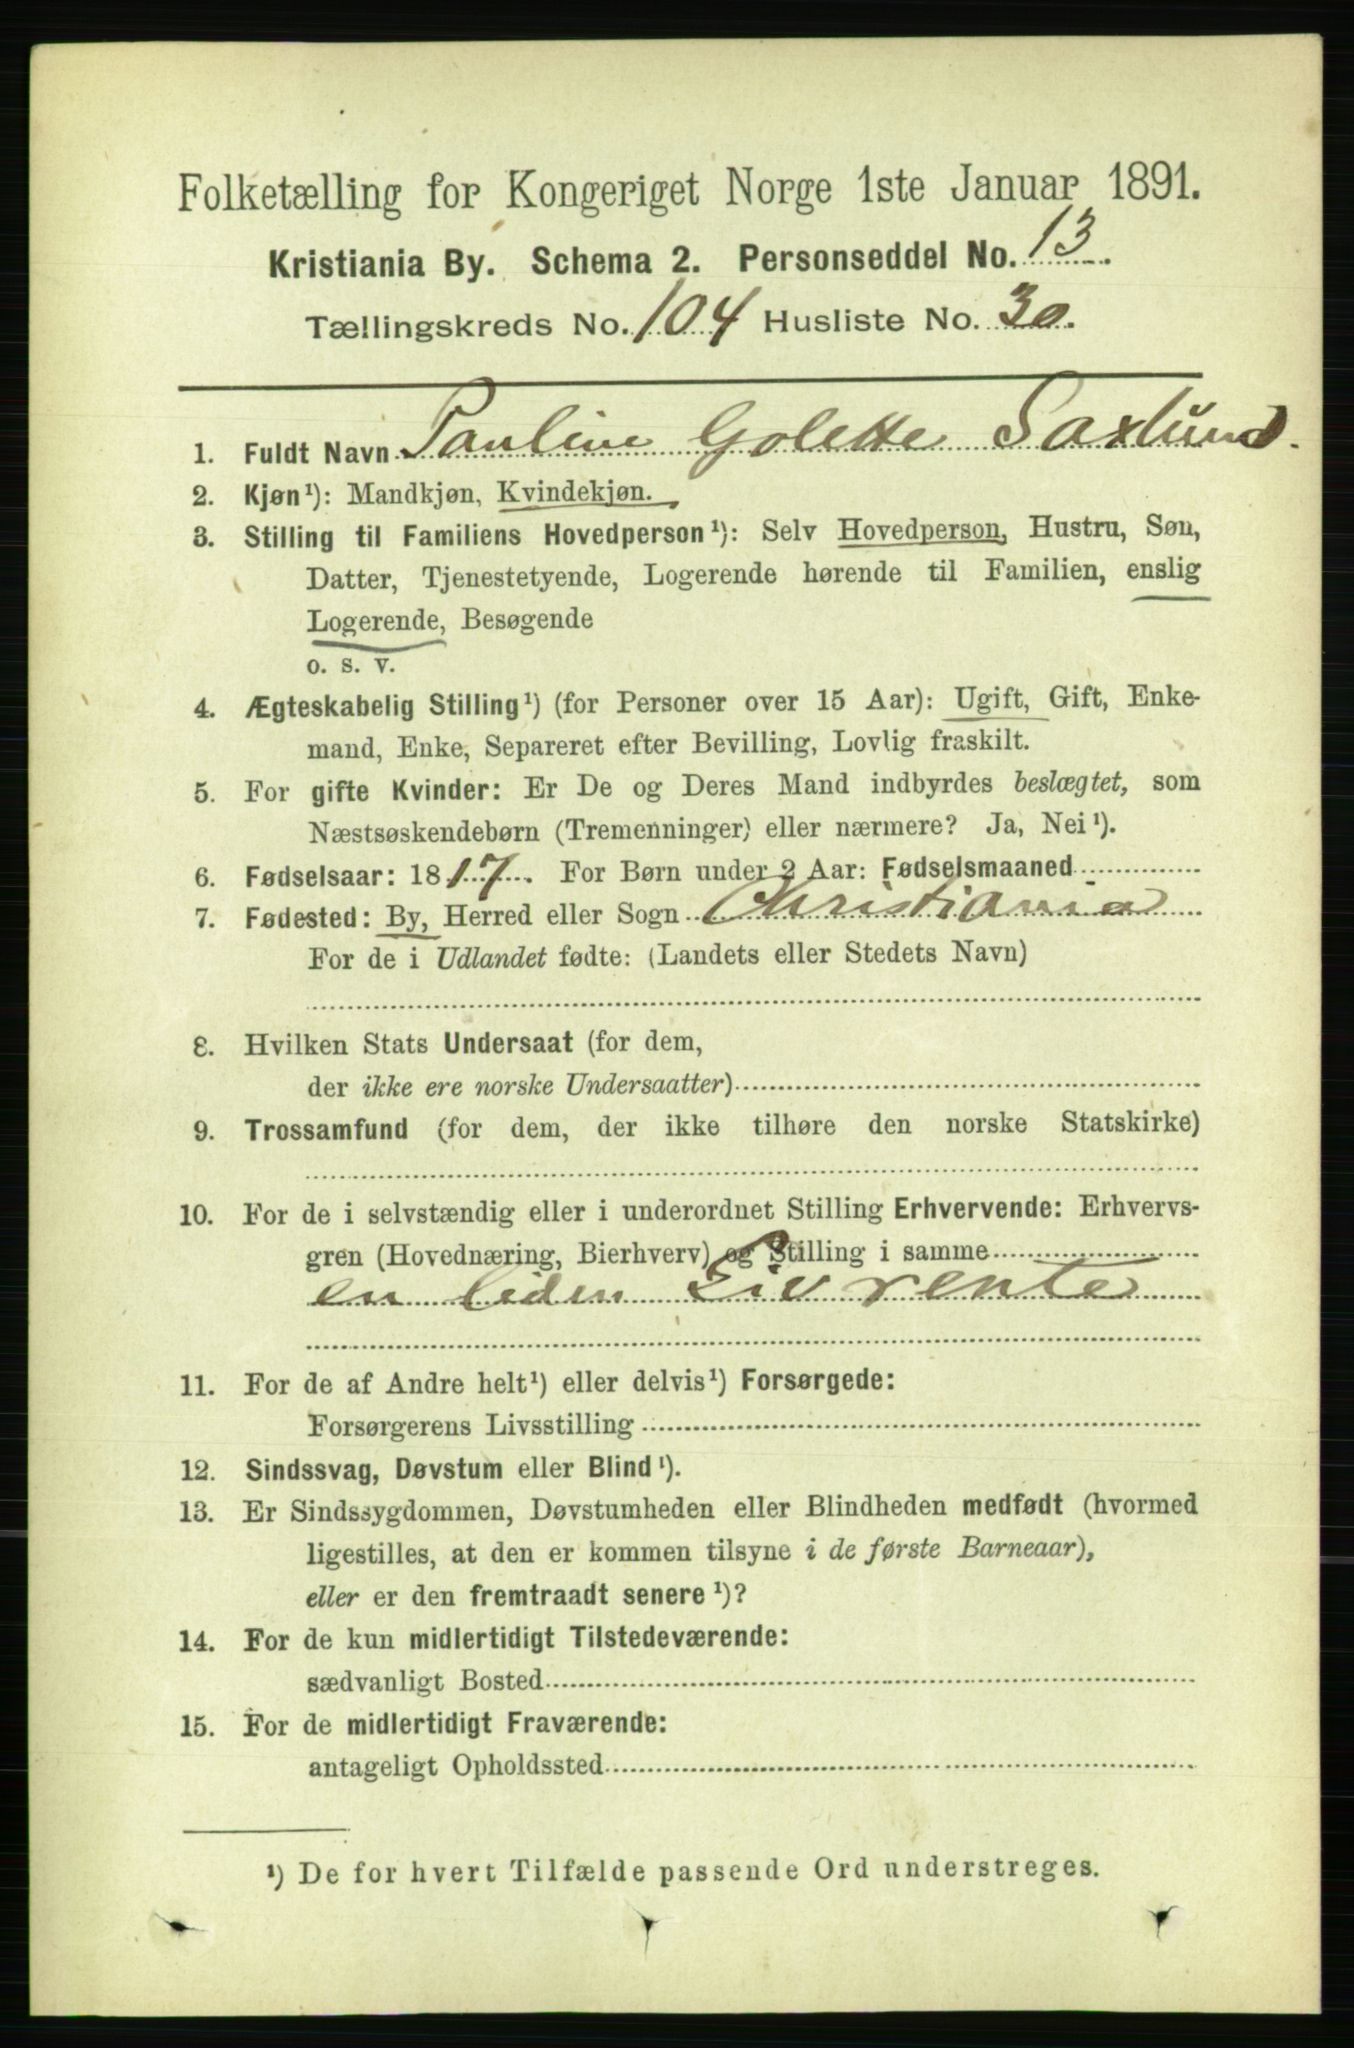 Folketælling for Kongeriget Norge 1ste Januar 1891.
Kristiania By. Schema 2. Personseddel No. 13.
Tællingskreds No. 104 Husliste No. 30.
1. Fuldt Navn Pauline Golette Saxlund.
2. Kjøn¹): Mandkjøn, Kvindekjøn.
3. Stilling til Familiens Hovedperson¹): Selv Hovedperson, Hustru, Søn,
Datter, Tjenestetyende, Logerende hørende til Familien, enslig
Logerende, Besøgende
o. s. v.
4. Ægteskabelig Stilling¹) (for Personer over 15 Aar): Ugift, Gift, Enke-
mand, Enke, Separeret efter Bevilling, Lovlig fraskilt.
5. For gifte Kvinder: Er De og Deres Mand indbyrdes beslægtet, som
Næstsøskendebørn (Tremenninger) eller nærmere? Ja, Nei¹).
6. Fødselsaar: 1817. For Børn under 2 Aar: Fødselsmaaned
7. Fødested: By, Herred eller Sogn Christiania
For de i Udlandet fødte: (Landets eller Stedets Navn)
8. Hvilken Stats Undersaat (for dem,
der ikke ere norske Undersaatter)
9. Trossamfund (for dem, der ikke tilhøre den norske Statskirke)
10. For de i selvstændig eller i underordnet Stilling Erhvervende: Erhvervs-
gren (Hovednæring, Bierhverv) og Stilling i samme
en liden Livrente
11. For de af Andre helt¹) eller delvis¹) Forsørgede:
Forsørgerens Livsstilling
12. Sindssvag, Døvstum eller Blind¹).
13. Er Sindssygdommen, Døvstumheden eller Blindheden medfødt (hvormed
ligestilles, at den er kommen tilsyne i de første Barneaar),
eller er den fremtraadt senere¹)?
14. For de kun midlertidigt Tilstedeværende:
sædvanligt Bosted
15. For de midlertidigt Fraværende:
antageligt Opholdssted
¹) De for hvert Tilfælde passende Ord understreges.